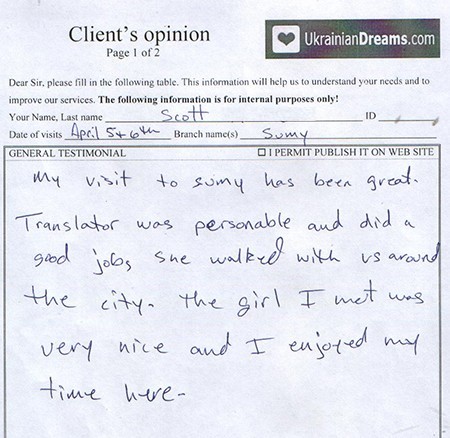 Client's opinion
Page 1 of 2
UkrainianDreams.com
Dear Sir, please fill in the following table. This information will help us to understand your needs and to
improve our services. The following information is for internal purposes only!
Your Name, Last name Scott ID
Date of visits April 5+6th Branch name(s) Sumy
GENERAL TESTIMONIAL ☐ I PERMIT PUBLISH IT ON WEB SITE
My visit to sumy has been great.
Translator was personable and did a
good job, she walked with us around
the city. The girl I met was
very nice and I enjoyed my
time here.